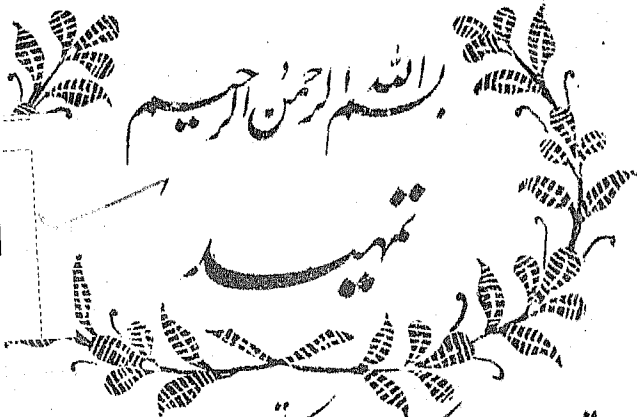 بسم الله الرحمن الرحیم
تمہید